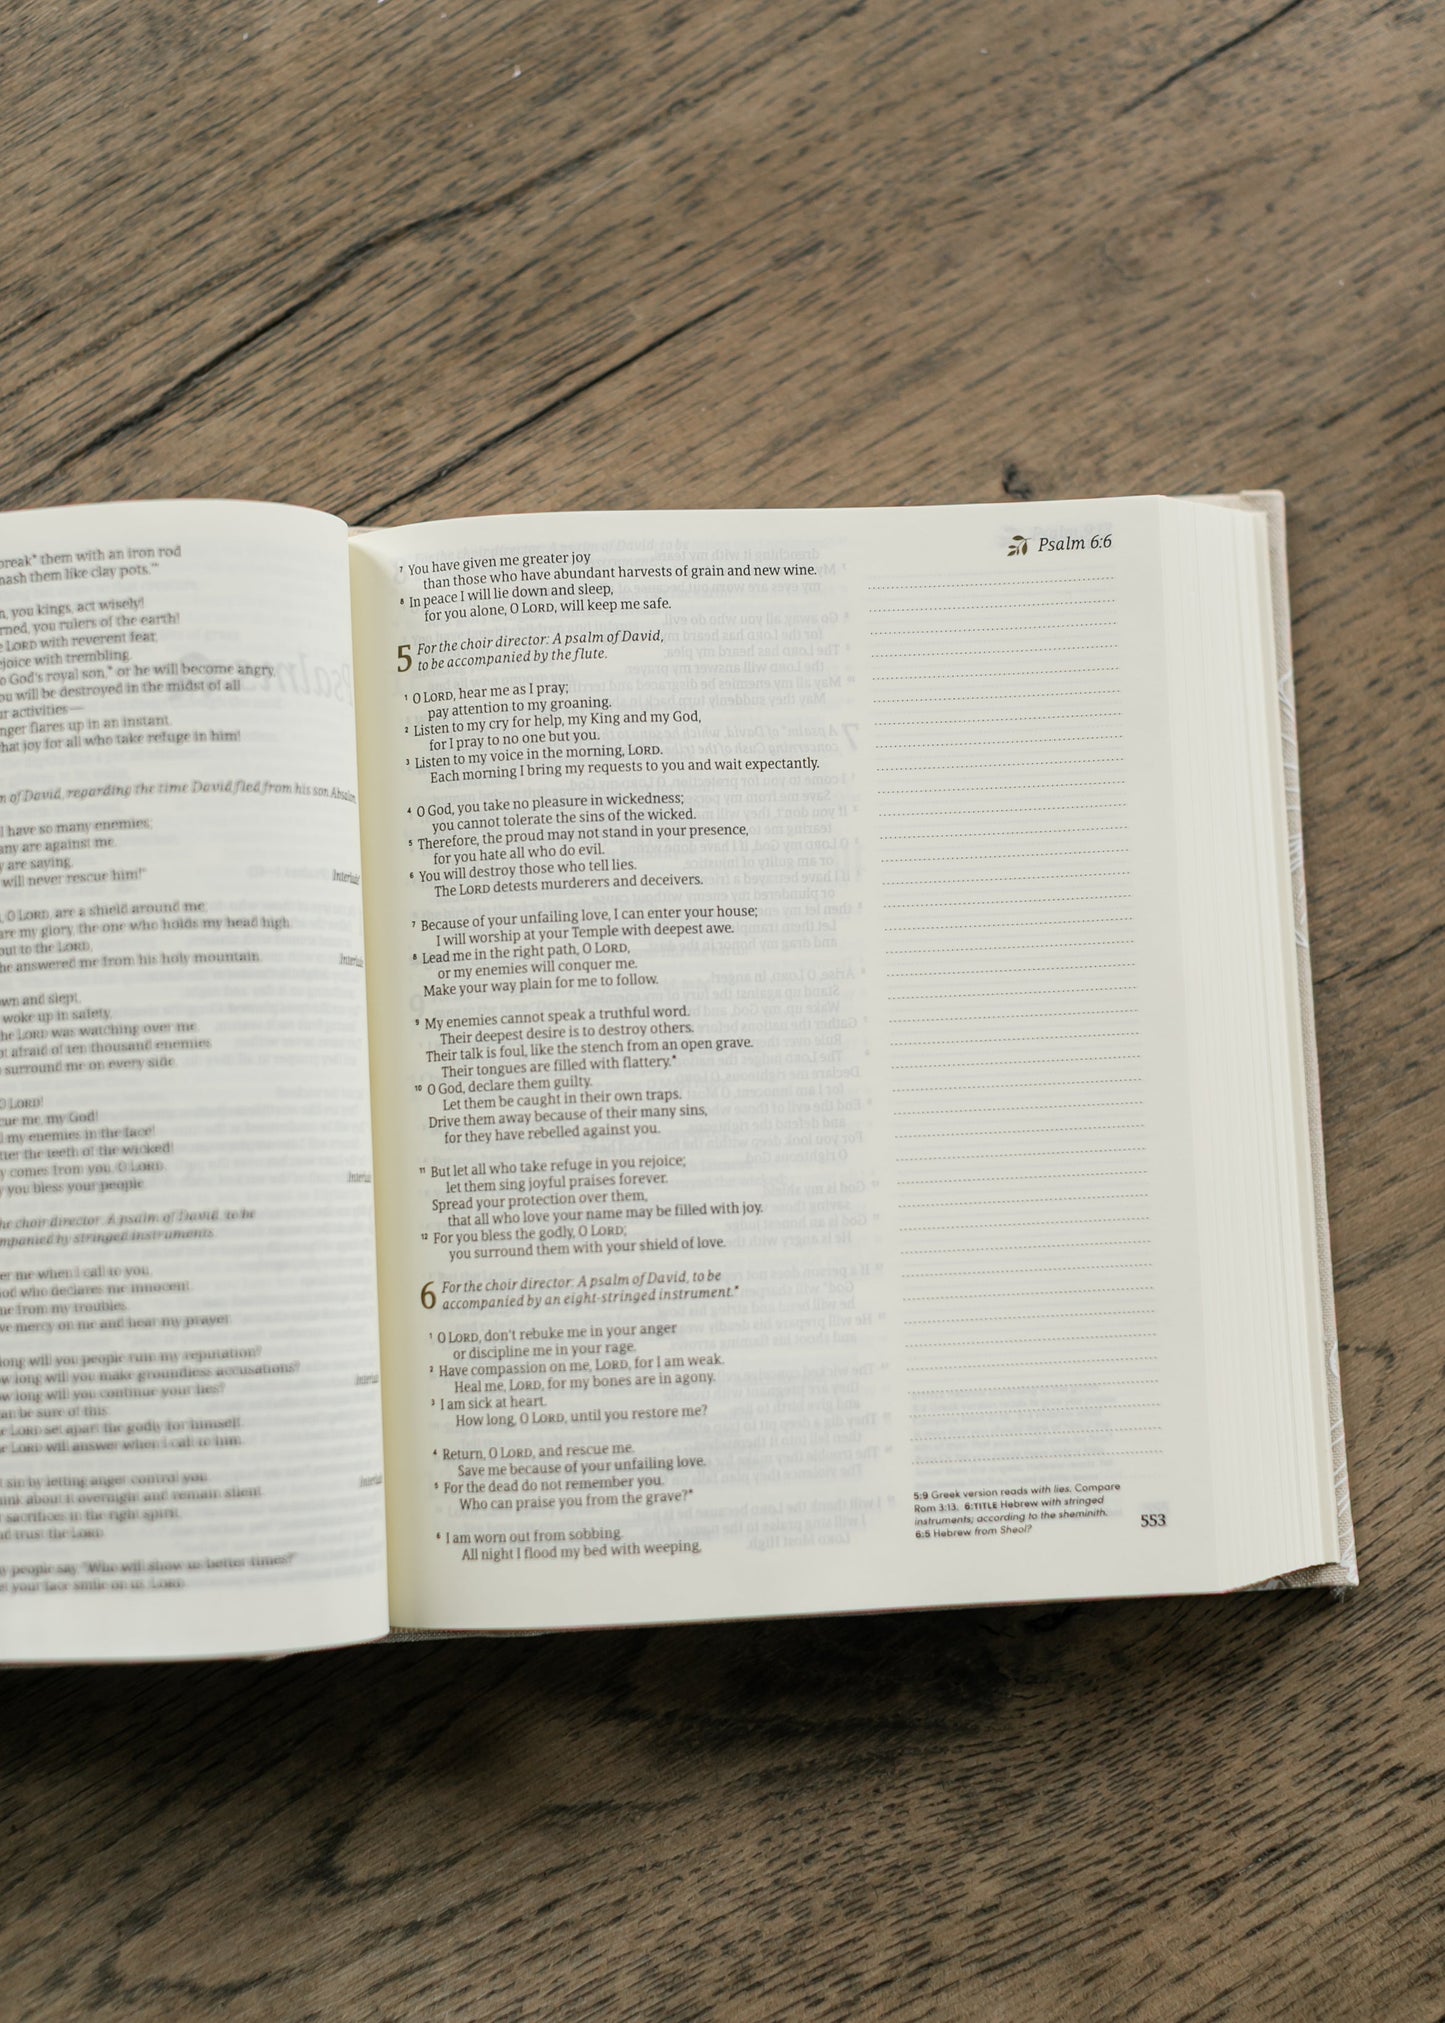 them with an iron rod
them like clay pots.”
you kings, act wisely!
you rulers of the earth!
LORD with reverent fear,
with trembling.
God's royal son,* or he will become angry,
will be destroyed in the midst of all
activities—
flares up in an instant.
joy for all who take refuge in him!
of David, regarding the time David fled from his son Absalom.
I have so many enemies;
are against me.
are saying,
will never rescue him!” Interlude
O LORD, are a shield around me;
my glory, the one who holds my head high.
out to the LORD,
he answered me from his holy mountain. Interlude
and slept,
woke up in safety,
LORD was watching over me.
afraid of ten thousand enemies
surround me on every side.
O LORD!
me, my God!
my enemies in the face!
the teeth of the wicked!
comes from you, O LORD.
you bless your people. Interlude
choir director: A psalm of David, to be
by stringed instruments.
me when I call to you,
who declares me innocent.
from my troubles.
mercy on me and hear my prayer.
long will you people ruin my reputation?
long will you make groundless accusations?
long will you continue your lies? Interlude
be sure of this:
LORD set apart the godly for himself.
LORD will answer when I call to him.
sin by letting anger control you.
about it overnight and remain silent. Interlude
sacrifices in the right spirit,
trust the LORD.
people say, “Who will show us better times?”
your face smile on us, LORD.
Psalm 6:6
7 You have given me greater joy
than those who have abundant harvests of grain and new wine.
8 In peace I will lie down and sleep,
for you alone, O LORD, will keep me safe.
5 For the choir director: A psalm of David,
to be accompanied by the flute.
1 O LORD, hear me as I pray;
pay attention to my groaning.
2 Listen to my cry for help, my King and my God,
for I pray to no one but you.
3 Listen to my voice in the morning, LORD.
Each morning I bring my requests to you and wait expectantly.
4 O God, you take no pleasure in wickedness;
you cannot tolerate the sins of the wicked.
5 Therefore, the proud may not stand in your presence,
for you hate all who do evil.
6 You will destroy those who tell lies.
The LORD detests murderers and deceivers.
7 Because of your unfailing love, I can enter your house;
I will worship at your Temple with deepest awe.
8 Lead me in the right path, O LORD,
or my enemies will conquer me.
Make your way plain for me to follow.
9 My enemies cannot speak a truthful word.
Their deepest desire is to destroy others.
Their talk is foul, like the stench from an open grave.
Their tongues are filled with flattery.*
10 O God, declare them guilty.
Let them be caught in their own traps.
Drive them away because of their many sins,
for they have rebelled against you.
11 But let all who take refuge in you rejoice;
let them sing joyful praises forever.
Spread your protection over them,
that all who love your name may be filled with joy.
12 For you bless the godly, O LORD;
you surround them with your shield of love.
6 For the choir director: A psalm of David, to be
accompanied by an eight-stringed instrument.*
1 O LORD, don't rebuke me in your anger
or discipline me in your rage.
2 Have compassion on me, LORD, for I am weak.
Heal me, LORD, for my bones are in agony.
3 I am sick at heart.
How long, O LORD, until you restore me?
4 Return, O LORD, and rescue me.
Save me because of your unfailing love.
5 For the dead do not remember you.
Who can praise you from the grave?*
6 I am worn out from sobbing.
All night I flood my bed with weeping,
5:9 Greek version reads with lies. Compare
Rom 3:13. 6:TITLE Hebrew with stringed
instruments; according to the sheminith.
6:5 Hebrew from Sheol?
553